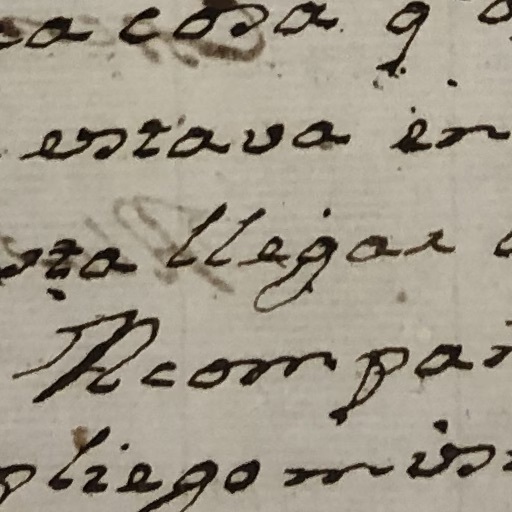 cosa q
estava in
sta llegar
Acompañ
pliego mis